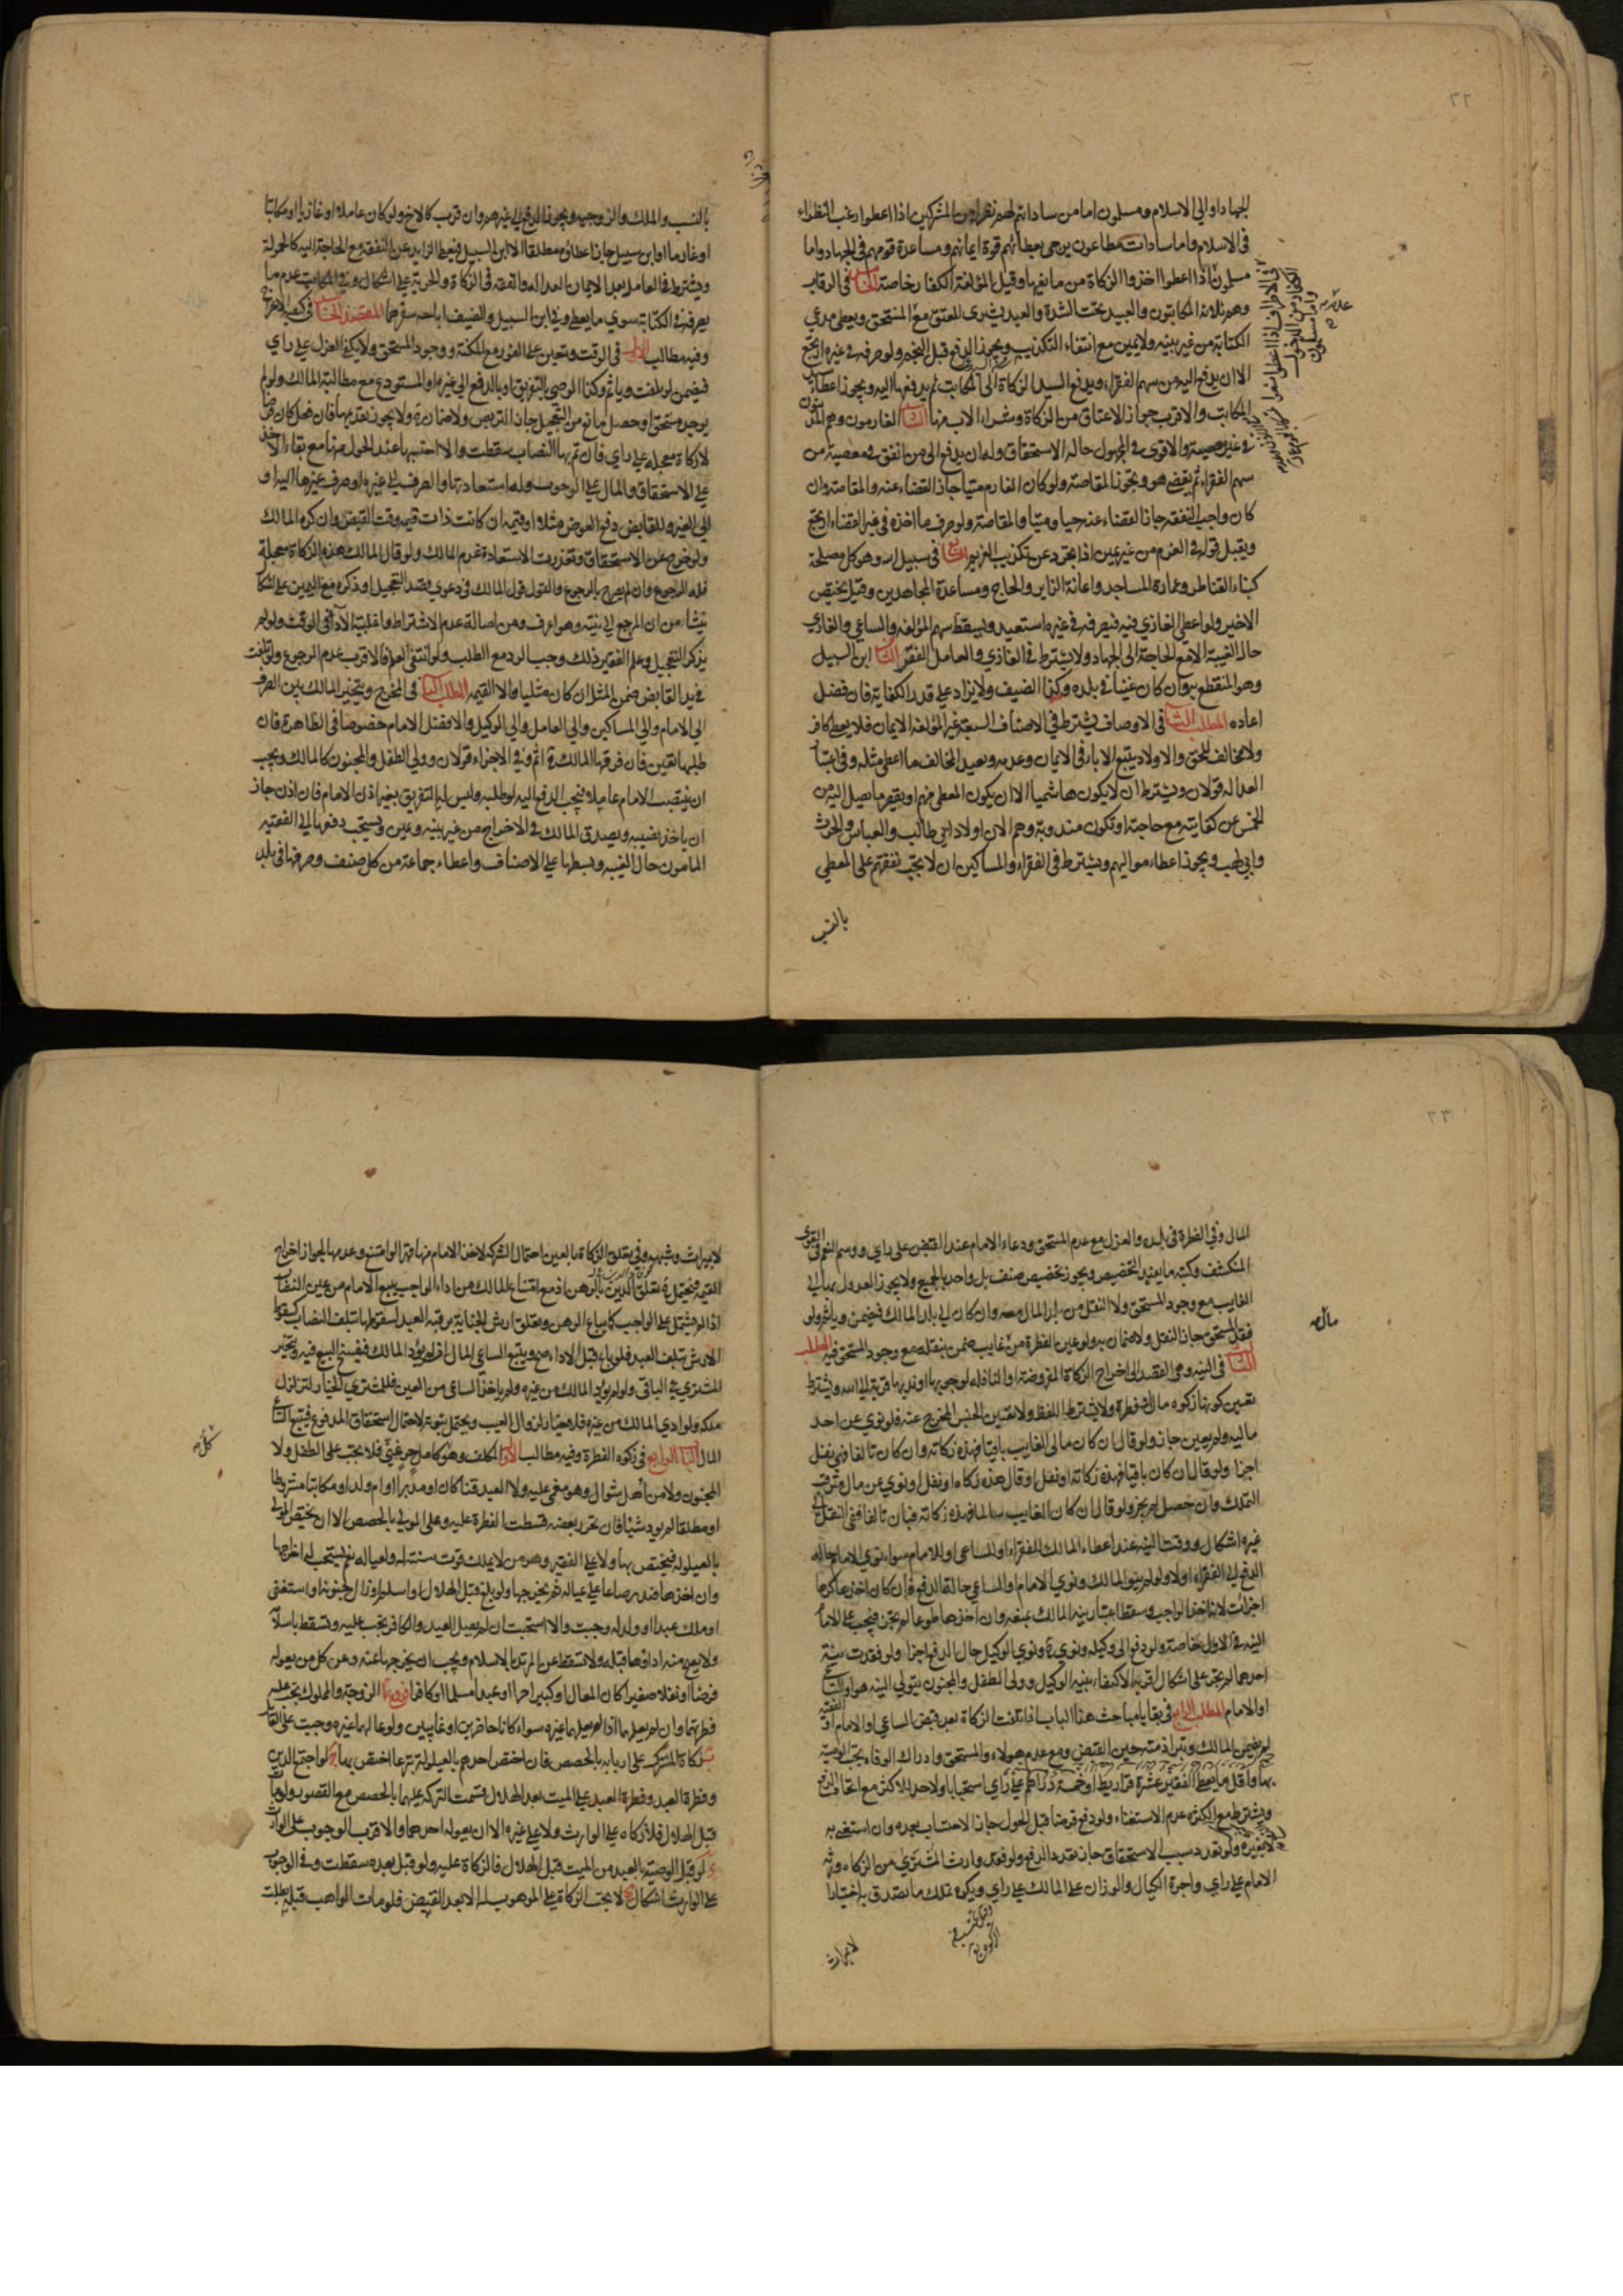 ٢٢
الجهاد او الي الاسلام ومسلمون اما من ساداتهم لهم نظراء من المشركين اذا اعطوا رغب النظراء
في الاسلام واما سادات مطاعون يرجى بعطائهم قوة ايمانهم ومساعدة قومهم في الجهاد واما
مسلمون اذا اعطوا اخذوا الزكاة من مانعيها وقيل المؤلفة الكفار خاصة الخامس في الرقاب
وهم ثلاثة المكاتبون والعبيد تحت الشدة والعبد يشترى للعتق مع المستحق ويعطى مدعي
الكتابة من غير بينه ولايمين مع انتفاء التكذيب ويجوز الدفع قبل النجم ولو صرفه في غيره ارتجع
الا ان يدفع اليه من سهم الفقراء ويدفع السيد الزكاة الى المكاتب ثم يدفعها اليه ويجوز اعطاء
المكاتب والاقرب جواز الاعتاق من الزكاة وشراء الاب منها السادس الغارمون وهم المدينون
في غير معصية والاقوى في المجهول حاله الاستحقاق وله ان يدفع الى من انفق في معصية من
سهم الفقراء ثم يقضي هو ويجوز المقاصة ولو كان الغارم ميتا جاز القضاء عنه والمقاصة وان
كان واجب النفقة جاز القضاء عنه حيا وميتا والمقاصة ولو صرف ما اخذه في غير القضاء ارتجع
ويقبل قوله في الغرم من غير يمين اذا تجرد عن تكذيب الغريم السابع في سبيل الله وهو كل مصلحة
كبناء القناطر وعمارة المساجد واعانة الزاير والحاج ومساعدة المجاهدين وقيل يختص
الاخير ولو اعطي الغازي فيه فصرفه في غيره استعيد ويسقط سهم المؤلفه والساعي والغازي
حال الغيبة الا مع الحاجة الى الجهاد ولايشترط في الغازي والعامل الفقر الثامن ابن السبيل
وهو المنقطع به وان كان غنيا في بلده وكذا الضيف ولايزاد علي قدر الكفاية فان فضل
اعاده المطلب الثاني في الاوصاف يشترط في الاصناف السبعة غير المؤلفة الايمان فلا يعطى كافر
ولا مخالف للحق والاولاد يتبع الاباء في الايمان وعدمه ويعيد المخالف ما اعطى مثله وفي اعتبار
العدالة قولان ويشترط ان لايكون هاشميا الا ان يكون المعطي منهم او يقصر ما يصل اليه من
الخمس عن كفايته مع حاجته او تكون مندوبة وهم الان اولاد ابي طالب والعباس والحرث
وابي لهب ويجوز اعطاء مواليهم ويشترط في الفقراء والمساكين ان لا تجب نفقتهم على المعطي
بالنسب
بالنسب والملك والزوجيه ويجوز الدفع الي غيرهم وان قرب كالاخ ولو كان عاملا او غازيا او مكاتبا
او غارما او ابن سبيل جاز اعطاؤه مطلقا الا ابن السبيل فيعطى الزايد عن النفقة مع الحاجة اليه كالحمولة
ويشترط في العامل بعد الايمان العدالة والفقه في الزكاة والحرية علي اشكال وفي المكاتب عدم ما
يصرفه في الكتابة سوي ما يعطى وفي ابن السبيل والضيف اباحة سفرهما المقصد الخامس في كيفية الاخراج
وفيه مطالب الاول في الوقت ويتعين علي الفور مع المكنة ووجود المستحق ولا يكفي العزل علي راي
فيضمن لو تلفت وياثم وكذا الوصي بالتفريق او بالدفع الي غيره او المستودع مع مطالبة المالك ولو لم
يوجد مستحق او حصل مانع من التعجيل جاز التربص ولاضمان ولا يجوز تقديمها فان فعل كان قرضا
لا زكاة معجلة علي راي فان تم بها النصاب سقطت والا احتسبها عند الحول منها مع بقاء الاخذ
علي الاستحقاق والمال علي الوجوب وله استعادتها والصرف الي غيره او صرف غيرها اليه او
الي الغير وللقابض دفع العوض مثلا او قيمة ان كانت ذات قيمه وقت القبض وان كره المالك
ولو خرج عن الاستحقاق وتعذرت الاستعادة غرم المالك ولو قال المالك هذه الزكاة معجلة
فله الرجوع وان لم يصرح بالرجوع والقول قول المالك في دعوى قصد التعجيل او ذكره مع اليمين على اشكال
ينشا من ان المرجع الي نيته وهو اعرف ومن اصالة عدم الاشتراط واغلبية الاداء في الوقت ولو لم
يذكر التعجيل وعلم الفقير ذلك وجب الرد مع الطلب ولو انتفى العلم فالاقرب عدم الرجوع ولو تلفت
في يد القابض ضمن المثل ان كان مثليا والا القيمه المطلب الثاني في المخرج ويتخير المالك بين الصرف
الي الامام والي المساكين والي العامل والي الوكيل والافضل الامام خصوصا في الظاهرة فان
طلبها تعين فان فرقها المالك ح اثم وفي الاجزاء قولان وولي الطفل والمجنون كالمالك ويجب
ان ينصب الامام عاملا فيجب الدفع اليه لو طلبه وليس له التفريق بغير اذن الامام فان اذن جاز
ان ياخذ نصيبه ويصدق المالك في الاخراج من غير بينه ويمين ويستحب دفعها الي الفقيه
المامون حال الغيبه وبسطها علي الاصناف واعطاء جماعة من كل صنف وصرفها في بلد
٢٣
المال وفي الفطرة في بلده والعزل مع عدم المستحق ودعاء الامام عند القبض على راي ووسم النعم في القوى
المنكشف وكتبه ما يفيد التخصيص ويجوز تخصيص صنف بل واحد بالجميع ولا يجوز العدول بها الي
الغايب مع وجود المستحق ولا النقل من بلد المال معه وان كان الي بلد المالك فيضمن وياثم ولو
فقد المستحق جاز النقل ولا ضمان ولو عين الفطرة من غايب ضمن بنقله مع وجود المستحق فيه المطلب
الثالث في النيه وهي القصد الي اخراج الزكاة المفروضة او النافلة لوجوبها او ندبها قربة الي الله ويشترط
تعيين كونها زكوة مال او فطرة ولايشترط اللفظ ولا تعيين الجنس المخرج عنه فلو نوي عن احد
ماليه ولم يعين جاز ولو قال ان كان مالى الغايب باقيا فهذه زكاته وان كان تالفا فهي نفل
اجزا ولو قال ان كان باقيا فهذه زكاته او نفل او قال هذه زكاة او نفل او نوي عن مال مترقب
التملك وان حصل لم يجز ولو قال ان كان الغايب سالما فهذه زكاته فبان تالفا ففي النقل الي
غيره اشكال ووقت النيه عند اعطاء المالك للفقراء او الساعي او للامام سواء نوي الامام حالة
الدفع الي الفقراء اولا ولو لم ينو المالك ونوي الامام او الساعي حالة الدفع فان كان اخذها كرها
اجزات لانه اخذ الواجب وسقط اعتبار نية المالك بمنعه وان اخذها طوعا لم يجز فيجب على الامام
النيه في الاول خاصة ولو دفع الى وكيله ونوي ح ونوي الوكيل حال الدفع اجزا ولو فقدت نية
احدهما لم يجز على اشكال اقربه الاكتفاء بنية الوكيل وولى الطفل والمجنون يتولي النيه هو او الساعي
او الامام المطلب الرابع في بقايا مباحث هذا الباب اذا تلفت الزكاة بعد قبض الساعي او الامام او الفقيه
لم يضمن المالك وتبرا ذمته حين القبض ومع عدم هولاء والمستحق وادراك الوفاة تجب الوصية
بها واقل ما يعطى الفقير عشرة قراريط او خمسة دراهم على راي استحبابا ولاحد للاكثر مع اتحاد الدفع
ويشترط مع الكثرة عدم الاستغناء ولو دفع قرضا قبل الحول جاز الاحتساب بعده وان استغنى به
لا بغيره ولو تعدد سبب الاستحقاق جاز تعدد الدفع ولو فقد وارث المشترى من الزكاة ورثه
الامام علي راي واجرة الكيال والوزان على المالك علي راي ويكره تملك ما تصدق به اختيارا
لا بميراث
مال صح
لا بميراث وشبهه وفي تعلق الزكاة بالعين احتمال الشركة لاخذ الامام منها قهرا لو امتنع وعدمها لجواز اخراج
القيمة فيحتمل ح تعلق الدين بالرهن اذ مع امتناع المالك من اداء الواجب يبيع الامام من عين النصاب
اذا لم يشتمل على الواجب كما يباع الرهن وتعلق ارش الجناية برقبة العبد لسقوطها بتلف النصاب كسقوط
الارش بتلف العبد فلو باع قبل الاداء صح ويتبع الساعي المال ان لم يؤد المالك فيفسخ البيع فيه ويتخير
المشتري في الباقي ولو لم يؤد المالك من غيره ولم ياخذ الساعي من العين فللمشتري الخيار لتزلزل
ملكه ولو ادي المالك من غيره فلا خيار لزوال العيب ويحتمل ثبوته لاحتمال استحقاق المدفوع فيتبع الساعي
المال الباب الرابع في زكوة الفطرة وفيه مطالب الاول المكلف وهو كامل حر غني فلا تجب على الطفل ولا
المجنون ولا من اهل شوال وهو مغمى عليه ولا العبد قنا كان او مدبرا او ام ولد او مكاتبا مشروطا
او مطلقا لم يود شيئا فان تحرر بعضه قسطت الفطرة عليه وعلى المولي بالحصص الا ان يختص المولى
بالعيلولة فيختص بها ولا علي الفقير وهو من لايملك قوت سنته له ولعياله نعم يستحب له اخراجها
وان اخذها فيدير صاعا علي عياله ثم يخرجها ولو بلغ قبل الهلال او اسلم او زال جنونه او استغنى
او ملك عبدا او ولد له وجبت والا استحبت ان لم يصل العيد والكافر تجب عليه وتسقط باسلامه
ولا يصح منه اداؤها قبله ولا تسقط عن المرتد بالاسلام ويجب ان يخرجها عنه وعن كل من يعوله
فرضا او نفلا صغيرا كان المعال او كبيرا حرا او عبدا مسلما او كافرا فروع ا الزوجة والمملوك تجب عليه
فطرتهما وان لم يعلهما اذا لم يعلهما غيره سواء كانا حاضرين او غايبين ولو عالهما غيره وجبت على العائل
ب زكاة المشترك على اربابه بالحصص فان اختص احدهم بالعيلولة تبرعا اختص بها ج لو اجتمع الدين
وفطرة العبد وفطرة العبد علي الميت بعد الهلال قسمت التركه عليهما بالحصص مع القصور ولو مات
قبل الهلال فلا زكاة على الوارث ولا على غيره الا ان يعوله احدهما والاقرب الوجوب على الوارث
د لو قبل الوصية بالعبد من الميت قبل الهلال فالزكاة عليه ولو قبل بعده سقطت وفي الوجوب
على الوارث اشكال ه لا تجب الزكاة على الموهوب له الا بعد القبض فلو مات الواهب قبله بطلت